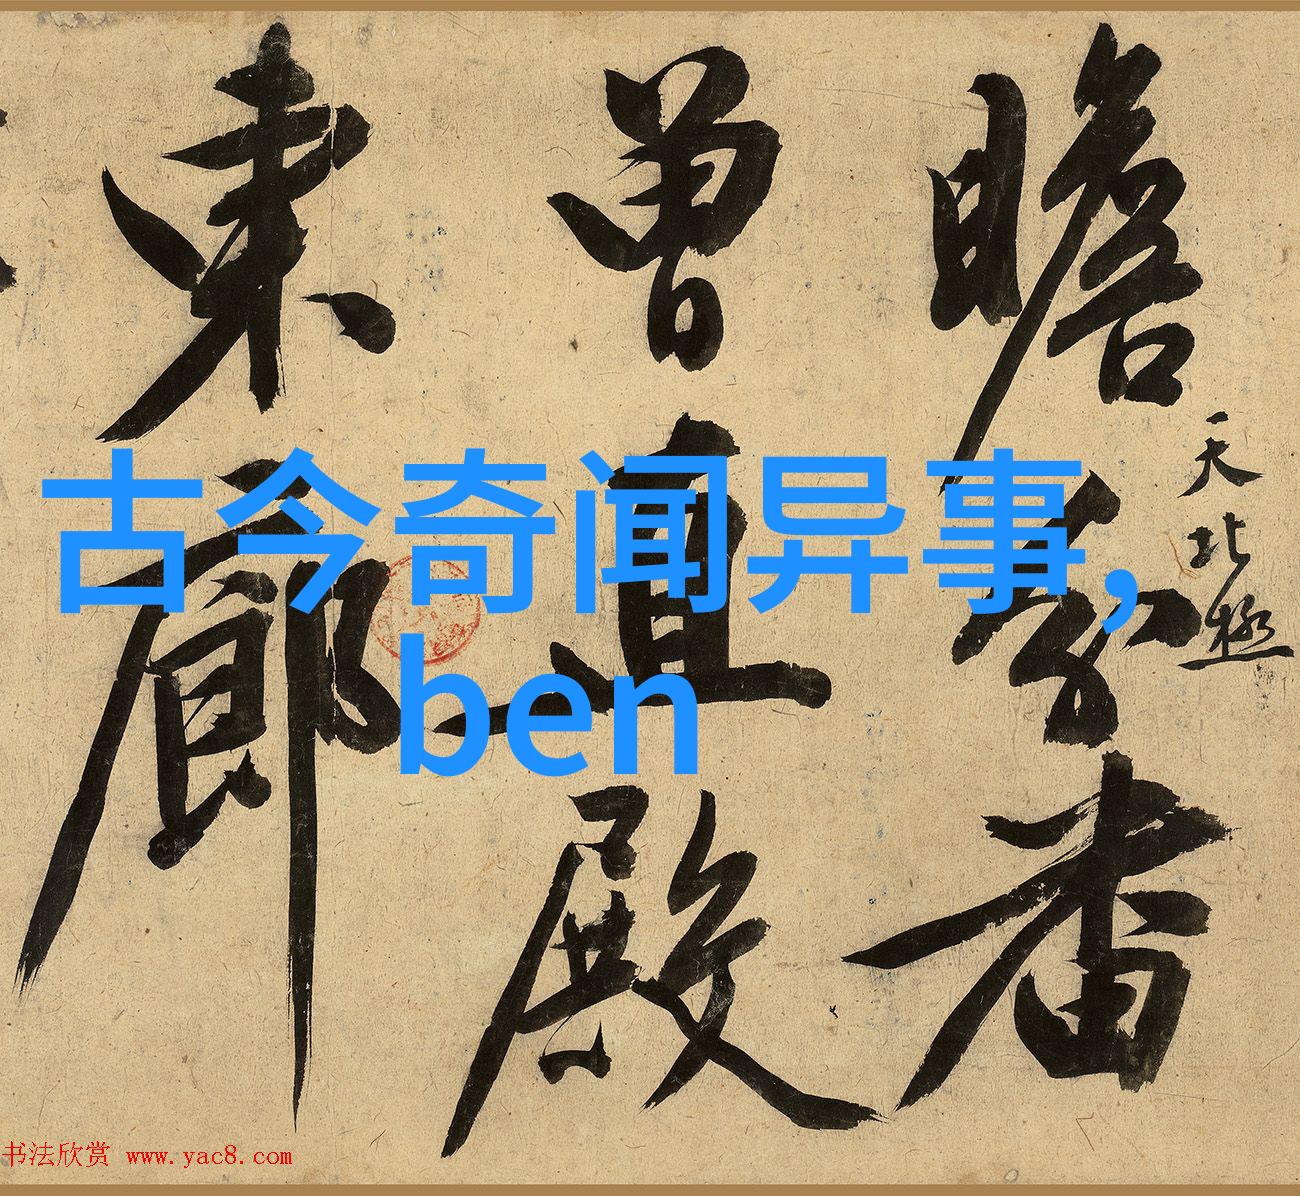 瞻
天北極
曾直殿
東廊
古今奇闻异事,
ben
书法欣赏 www.yac8.com